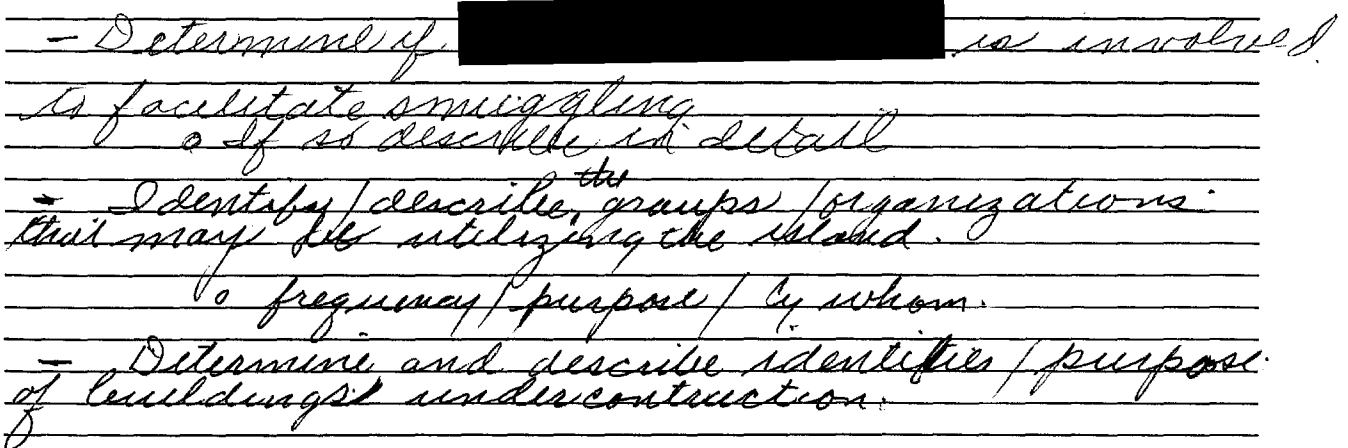 - Determine if is involved
to facilitate smuggling
o If so describe in detail
- Identify/describe, the groups/organizations
that may be utilizing the island.
o frequency/purpose/by whom.
- Determine and describe identities/purpose
of buildings undercontruction.